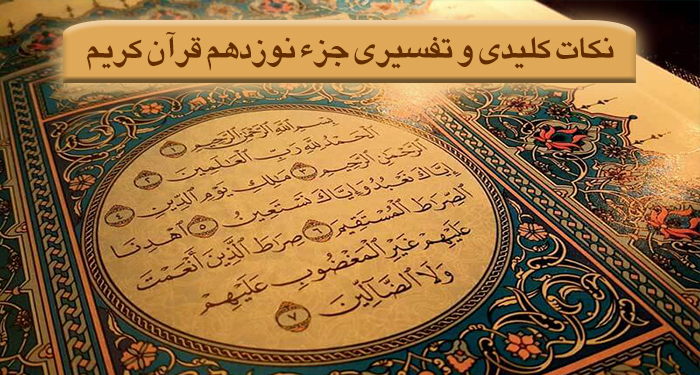 نکات کلیدی و تفسیری جزء نوزدهم قرآن کریم
بِسْمِ اللَّهِ الرَّحْمَٰنِ الرَّحِيمِ ١
الْحَمْدُ لِلَّهِ رَبِّ الْعَٰلَمِينَ ٢
الرَّحْمَٰنِ الرَّحِيمِ ٣ مَٰلِكِ يَوْمِ الدِّينِ ٤
إِيَّاكَ نَعْبُدُ وَإِيَّاكَ نَسْتَعِينُ ٥ اهْدِنَا
الصِّرَٰطَ الْمُسْتَقِيمَ ٦ صِرَٰطَ الَّذِينَ أَنْعَمْتَ
عَلَيْهِمْ غَيْرِ الْمَغْضُوبِ عَلَيْهِمْ
وَلَا الضَّالِّينَ ٧